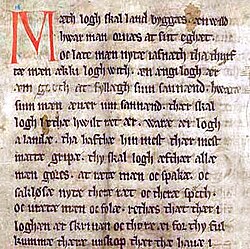 Mæth logh skal land byggæs. æn wild
hwær man oruæs at sit eghet
oc latæ mæn nytæ iafnæth tha thyrf
tæ mæn ækki logh with. æn ængi logh ær
æm goth at fylghi sum sannænd. hwaræ
sum mæn æuær um sannænd. thær skal
logh letæ hwilt ræt ær. waræ æi logh
a landæ. tha hafthæ hin mest thær mest
mattæ gripæ. thy skal logh æfthær allæ
mæn gøræs. at rætæ mæn oc spakæ. oc
sakløsæ nytæ theræ ræt oc theræ spæcht.
oc urætæ mæn oc folæ. rethæs that thær i
loghæn ær skriuæn oc thoræ æi for thy ful
kummæ theræ unskop thær thæ haua i